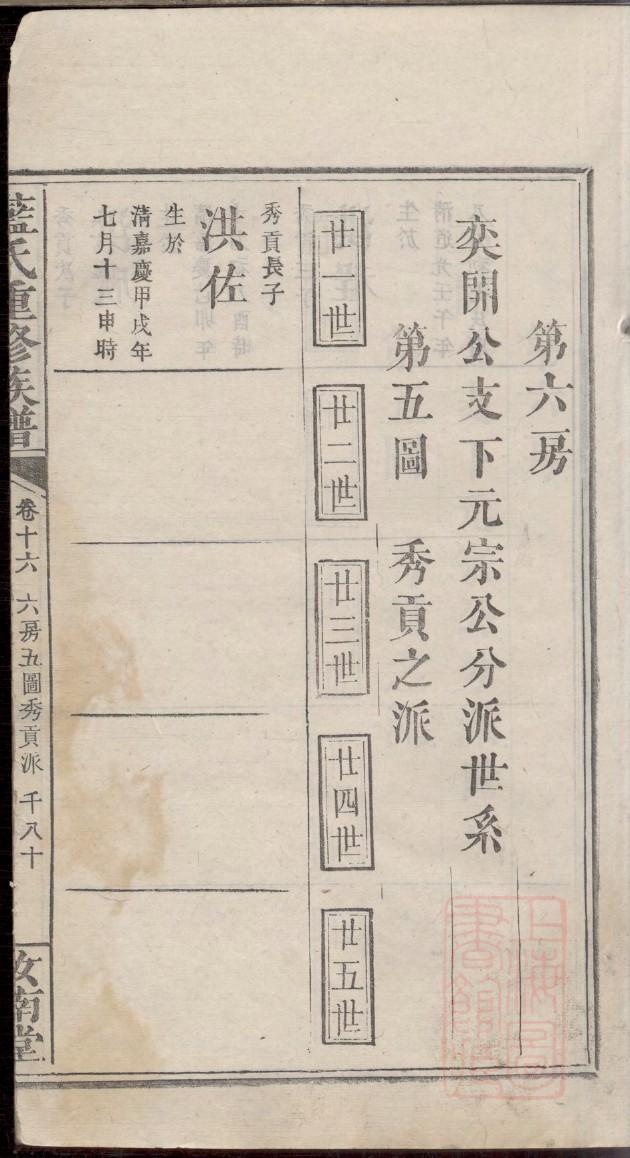 第六房
奕開公支下元宗公分派世系
第五圖 秀貢之派
廿一世
廿二世
廿三世
廿四世
廿五世
秀貢長子
洪佐
生於
清嘉慶甲戌年
七月十三申時
藍氏重修族譜
卷十六 六房五圖秀貢派 千八十
汝南堂
上海圖書館藏